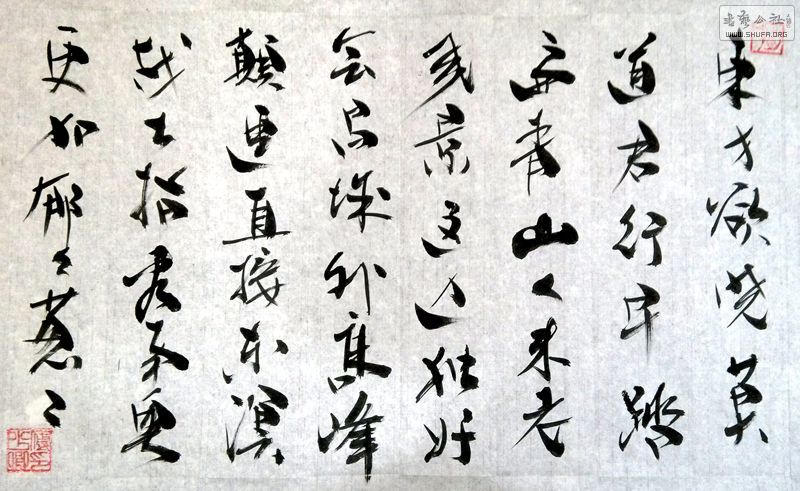 東方欲晓莫
道君行早踏
遍青山人未老
风景这边独好
会昌城外高峰
顛連直接东溟
战士指看南粤
更加郁々葱々
書藝公社
WWW.SHUFA.ORG